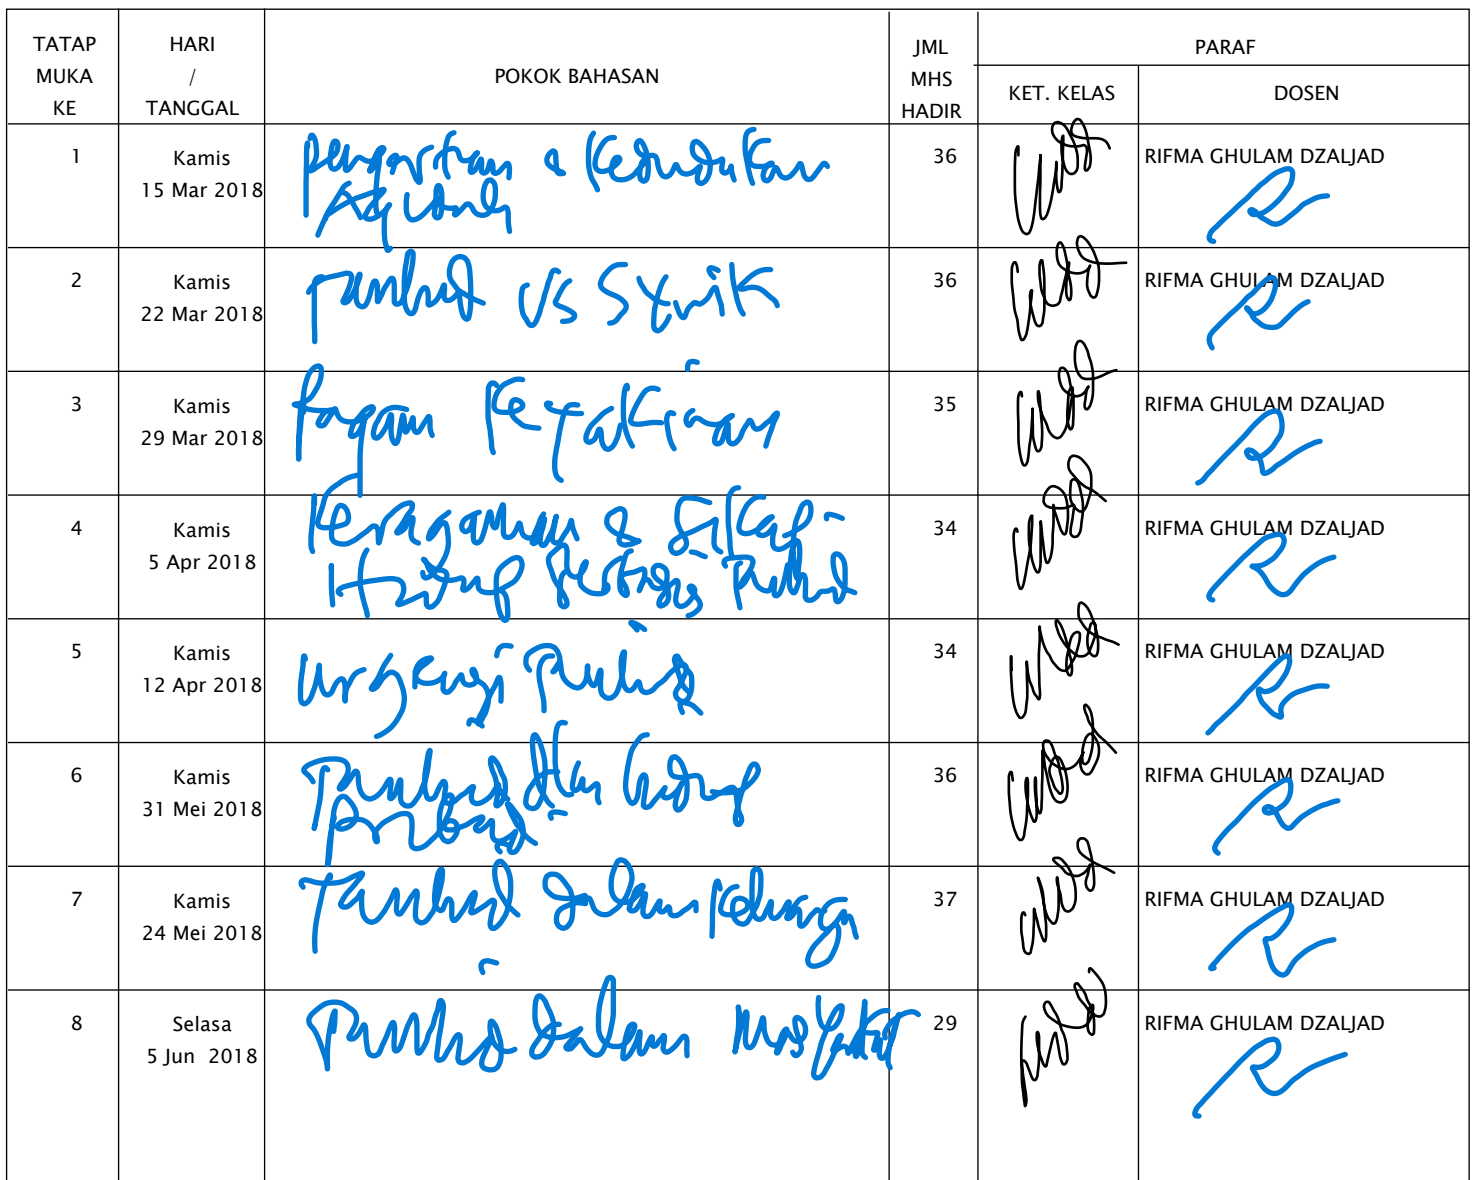 TATAP MUKA KE HARI / TANGGAL POKOK BAHASAN JML MHS HADIR PARAF
KET. KELAS DOSEN
1 Kamis 15 Mar 2018 pengertian & Kedudukan 36 RIFMA GHULAM DZALJAD
Aqidah
2 Kamis 22 Mar 2018 Tauhid vs Syirik 36 RIFMA GHULAM DZALJAD
3 Kamis 29 Mar 2018 Ragam Keyakinan 35 RIFMA GHULAM DZALJAD
4 Kamis 5 Apr 2018 Keragaman & Sikap 34 RIFMA GHULAM DZALJAD
Hidup Berbasis Tauhid
5 Kamis 12 Apr 2018 Urgensi Tauhid 34 RIFMA GHULAM DZALJAD
6 Kamis 31 Mei 2018 Tauhid dlm hidup 36 RIFMA GHULAM DZALJAD
Pribadi
7 Kamis 24 Mei 2018 Tauhid dalam Keluarga 37 RIFMA GHULAM DZALJAD
8 Selasa 5 Jun 2018 Tauhid dalam Masyarakat 29 RIFMA GHULAM DZALJAD